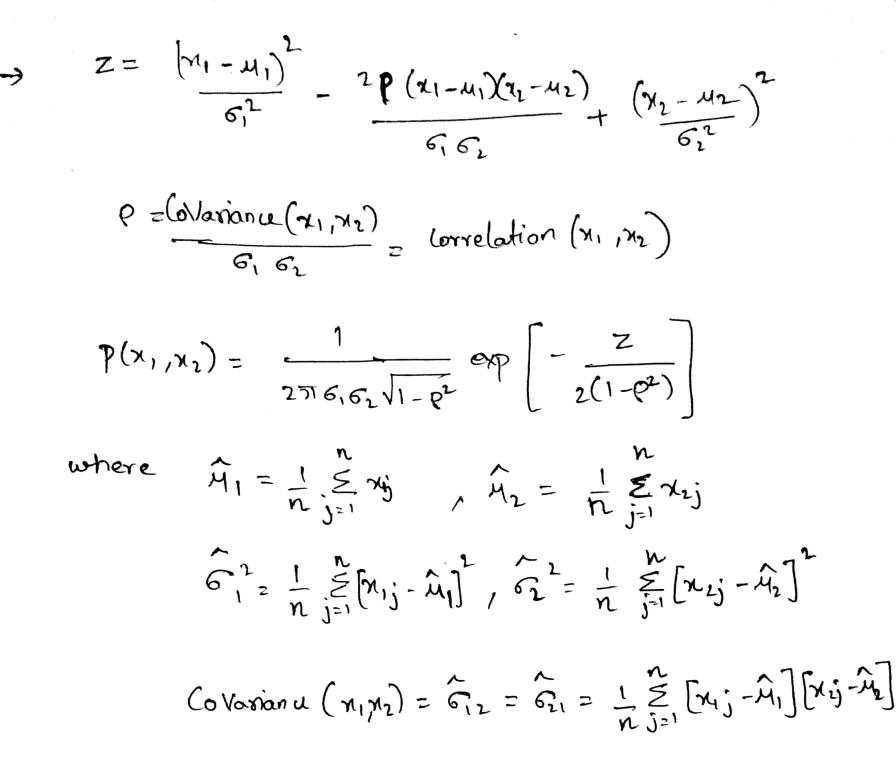 → z = (x₁ - μ₁)² / σ₁² - 2ρ (x₁-μ₁)(x₂-μ₂) / σ₁ σ₂ + (x₂ - μ₂)² / σ₂²
ρ = Covariance (x₁, x₂) / σ₁ σ₂ = Correlation (x₁, x₂)
P(x₁, x₂) = 1 / 2π σ₁ σ₂ √(1-ρ²) exp [ - z / 2(1-ρ²) ]
where μ̂₁ = 1/n Σ_{j=1}^{n} x₁j , μ̂₂ = 1/n Σ_{j=1}^{n} x₂j
σ̂₁² = 1/n Σ_{j=1}^{n} [x₁j - μ̂₁]² , σ̂₂² = 1/n Σ_{j=1}^{n} [x₂j - μ̂₂]²
Covariance (x₁, x₂) = σ̂₁₂ = σ̂₂₁ = 1/n Σ_{j=1}^{n} [x₁j - μ̂₁] [x₂j - μ̂₂]